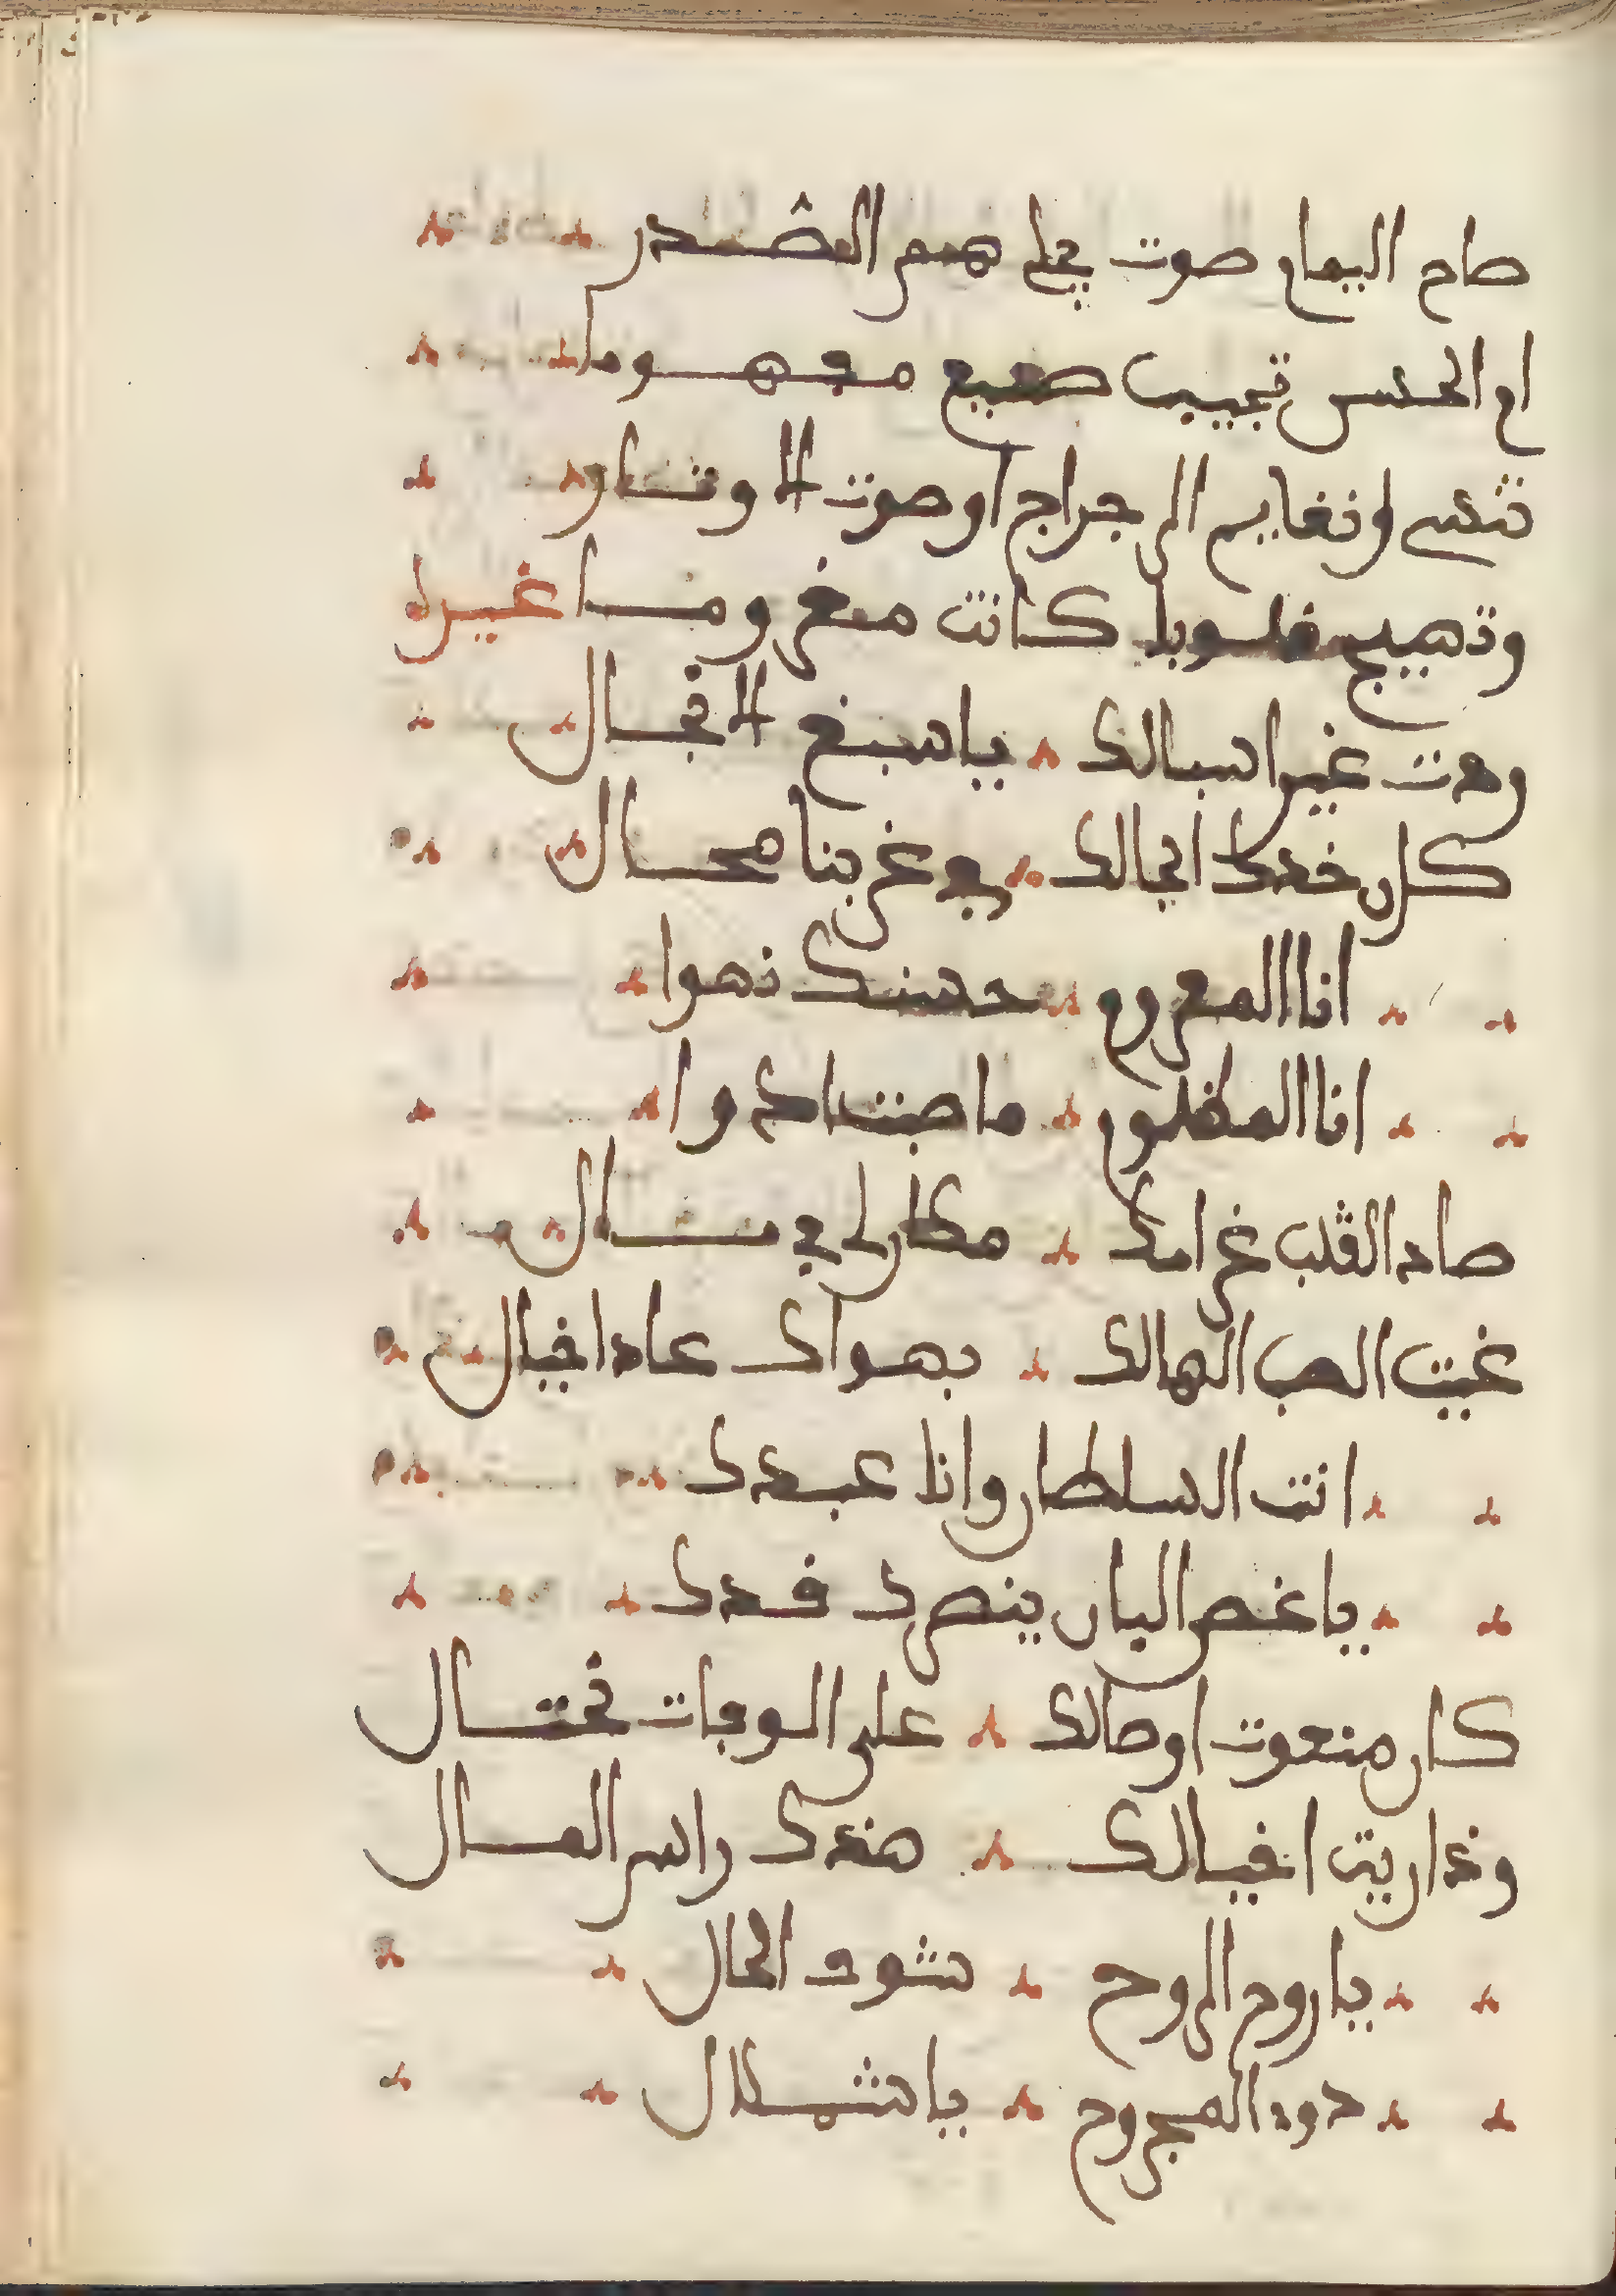 صاح اليمام صوت يجلي هم الصدر
ام الحسن تجيب صنيع مفهوما
تنسي لونغايم الى جراح اوصوت الاوتار
وتهيج قلوبا كانت مغرومــا غيره
ودت غير اسبالك يا سبغ الانجـال
كل خدك ابجالك في غربنا محـال
انا المغروم حسنك نهوا
انا المظلوم ما صبت ادوا
صاد القلب غرامك مطار لي في بــال
غيت الصب الهالك بهواك عاد اخيال
انت السلطان وانا عبدك
يا غصن البان ينصرك فدك
كان منعوت اوصالك على الوجات تختــال
وغداريت اخيالك هندك راس المــال
يا روح الروح شوف الحال
دود المجروح يا شملال